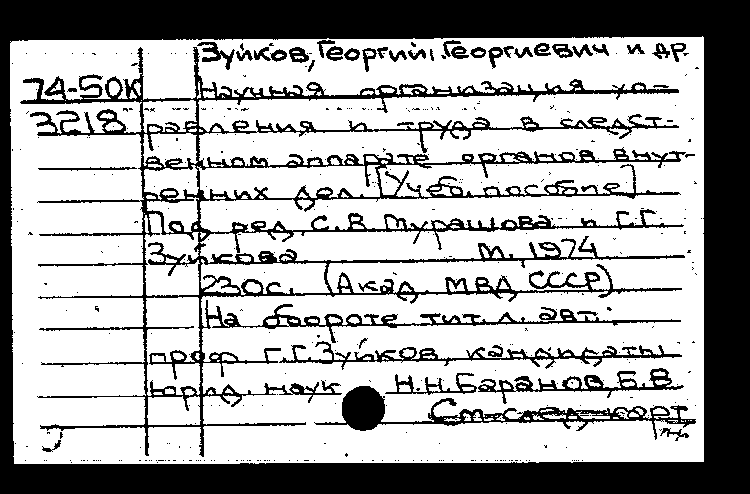 Зуйков, Георгий Георгиевич и др.
74-50К Научная организация уп-
3218 равления и труда в следст-
венном аппарате органов внут-
ренних дел. [Учеб. пособие].
Под ред. С.В. Мурашова и Г.Г.
Зуйкова М., 1974
230с. (Акад. МВД СССР)
На обороте тит. л. авт.:
проф. Г.Г. Зуйков, кандидаты
юрид. наук Н.Н. Баранов, Б.В
См. след. карт